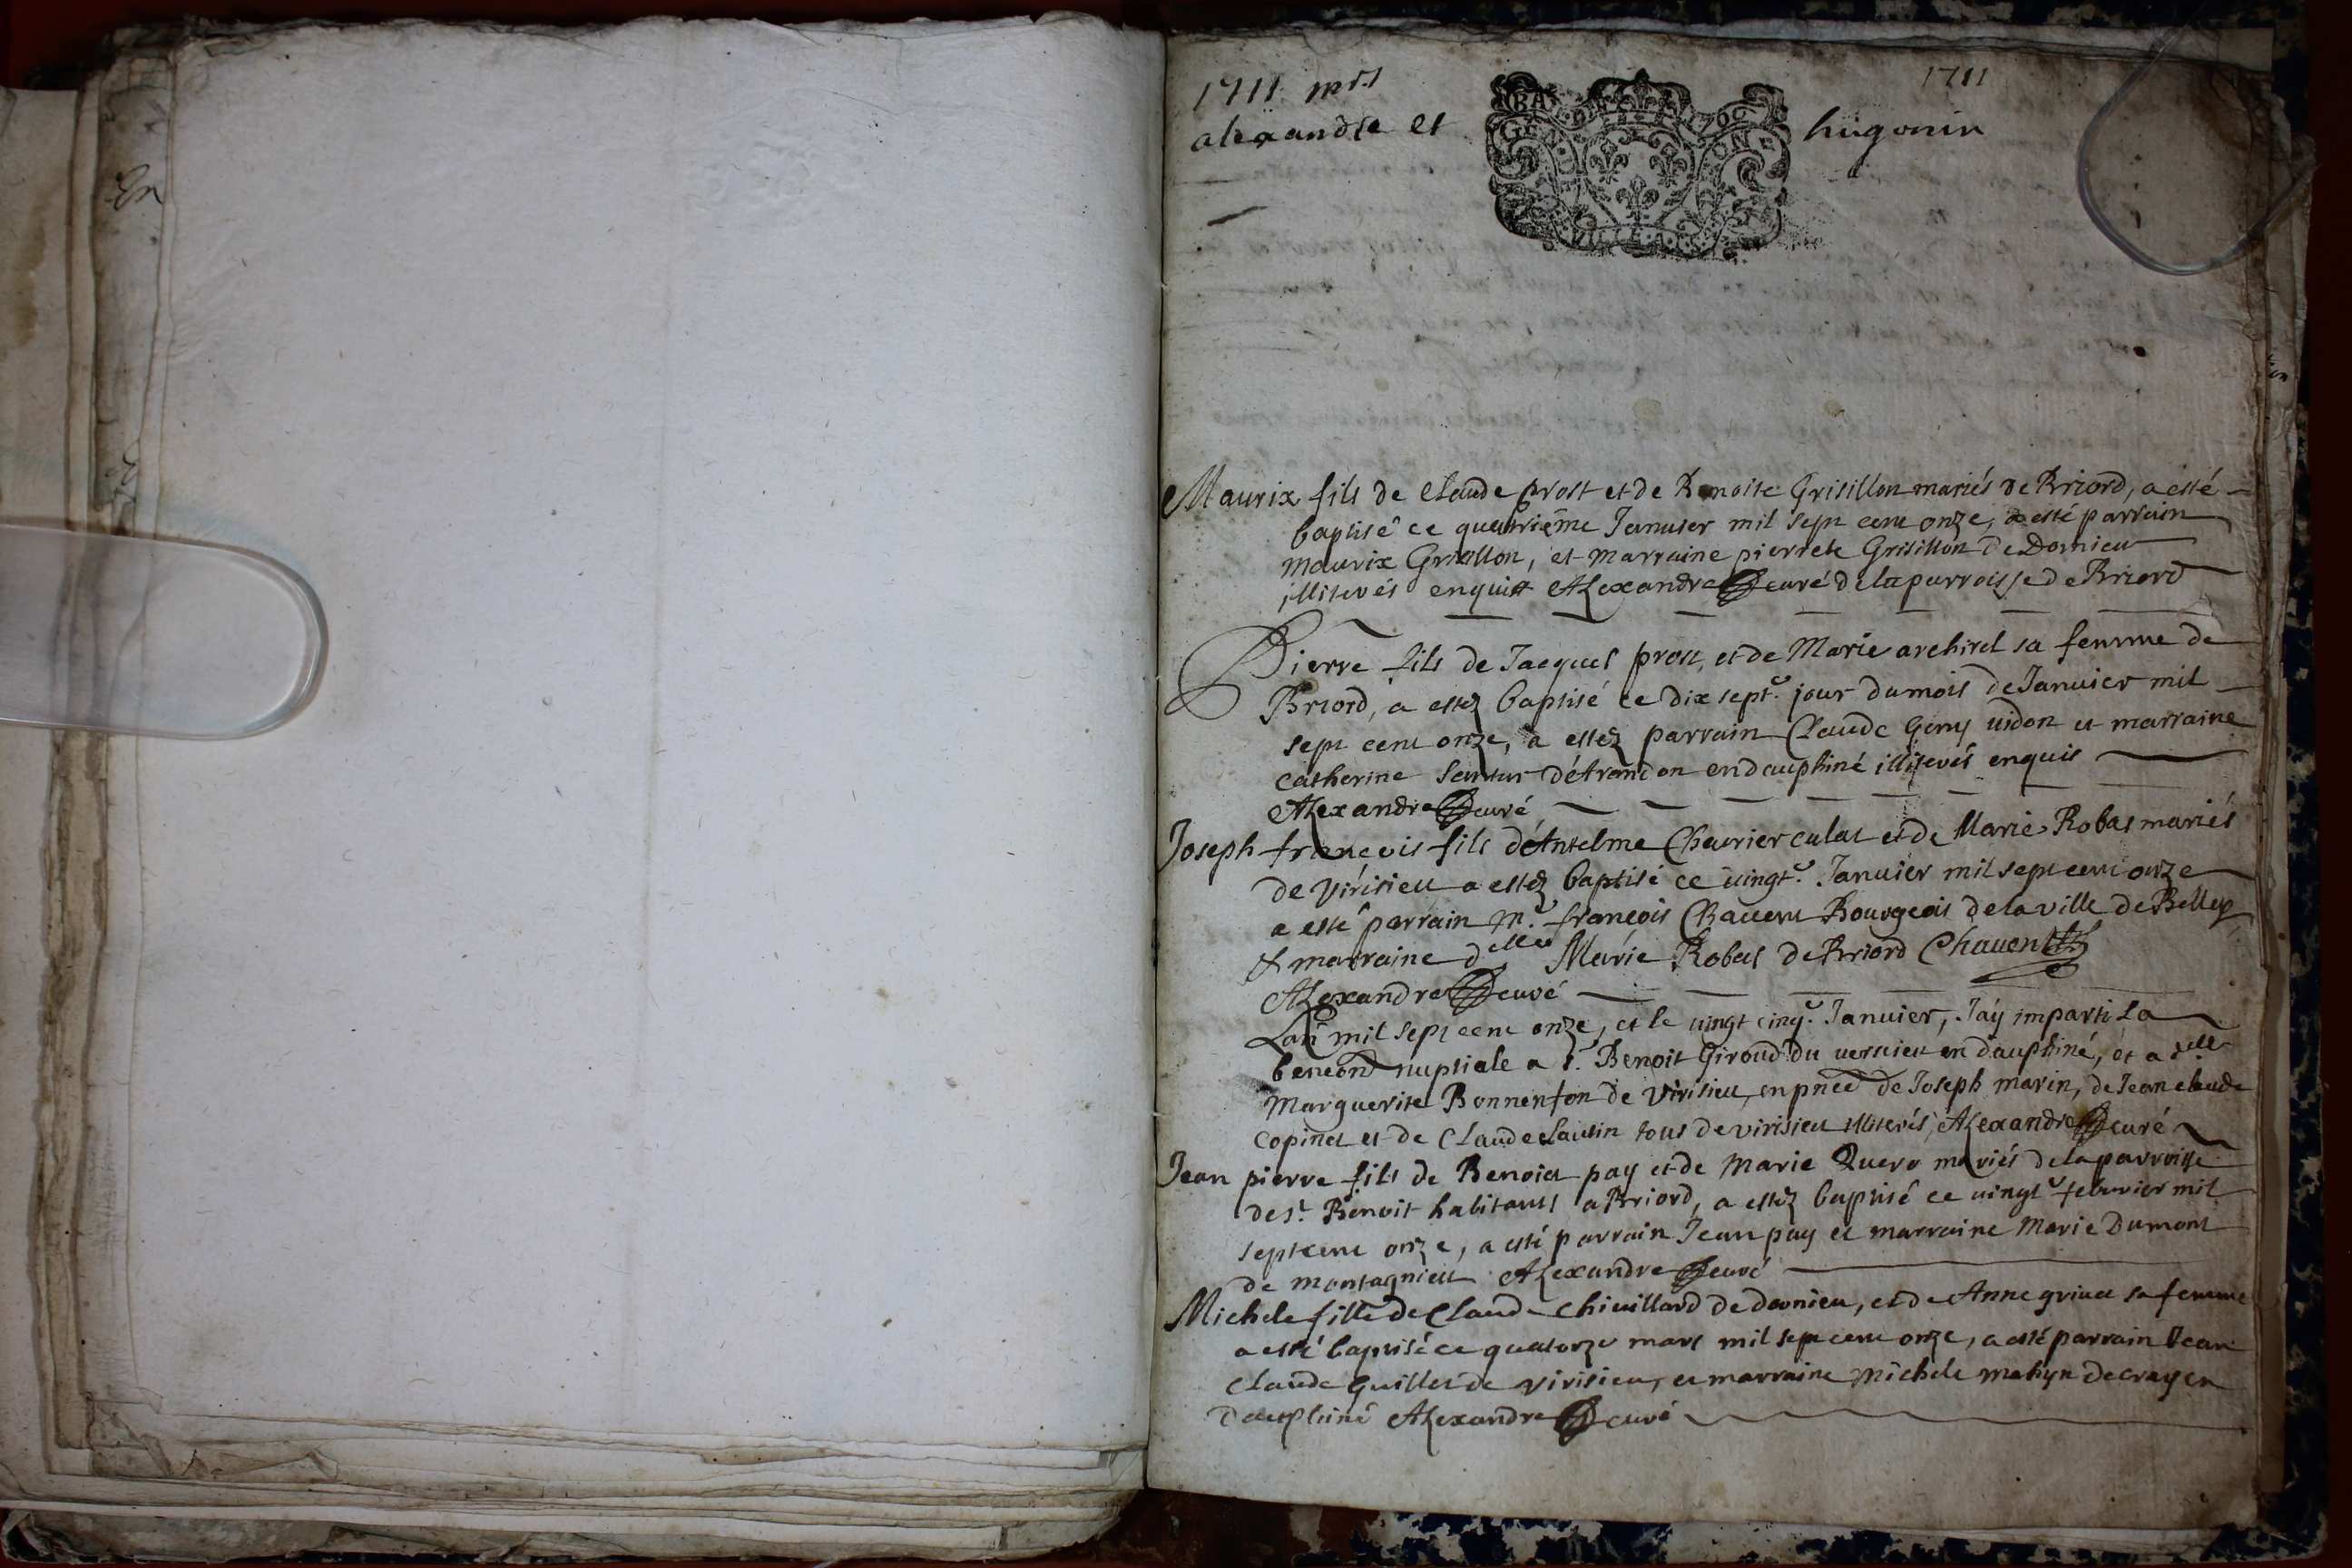 1711 mrs
1711
alexandre et hugonin
Maurix fils de Claude prost et de Benoite Grisillon mariés de Briord, a esté
baptisé ce quatriéme Januier mil sept cent onze, a esté parrain
Maurix Grisillon, et marraine pierrete Grisillon de Dornieu
illiterés enquist Alexandre curé dela parroisse de Briord
Pierre fils de Jacques prost, et de Marie archirel sa femme de
Briord, a estez baptisé ce dix sept.e jour du mois de Januier mil
sept cent onze, a estez parrain Claude Geny uidon et marraine
Catherine d'Atrandon en dauphiné illiterés enquis
Alexandre curé
Joseph françois fils d'Antelme Cheurier culat et de Marie Robas mariés
de Virisieu a estez baptisé ce uingt.e Januier mil sept cent onze
a esté parrain m.e françois Chauent Bourgeois de la ville de Belley
& marraine delle Marie Robas de Briord Chauent
Alexandre curé
Lan mil sept cent onze, et le uingt cinq.e Januier, J'aÿ imparti la
beneon nuptiale a s.r Benoit Giroud du uernieu en dauphiné, et a delle
Marguerite Bonnenton de Virisieu, en pnce de Joseph marin, de Jean claude
Copinet et de Claude Lautin tous de virisieu illiterés, Alexandre curé
Jean pierre fils de Benoit pay et de Marie Quero mariés de la parroisse
de s.t Benoit habitants a Briord, a estez baptisé ce uingt.e feburier mil
sept cent onze, a esté parrain Jean pay et marraine Marie Dumont
de montagnieu Alexandre curé
Michele fille de Claude Chiuillard de dornieu, et de Anne griuet sa femme
a esté baptisé ce quatorze mars mil sept cent onze, a esté parrain Jean
Claude Guillet de virisieu, et marraine Michele de cray en
Dauphiné Alexandre curé